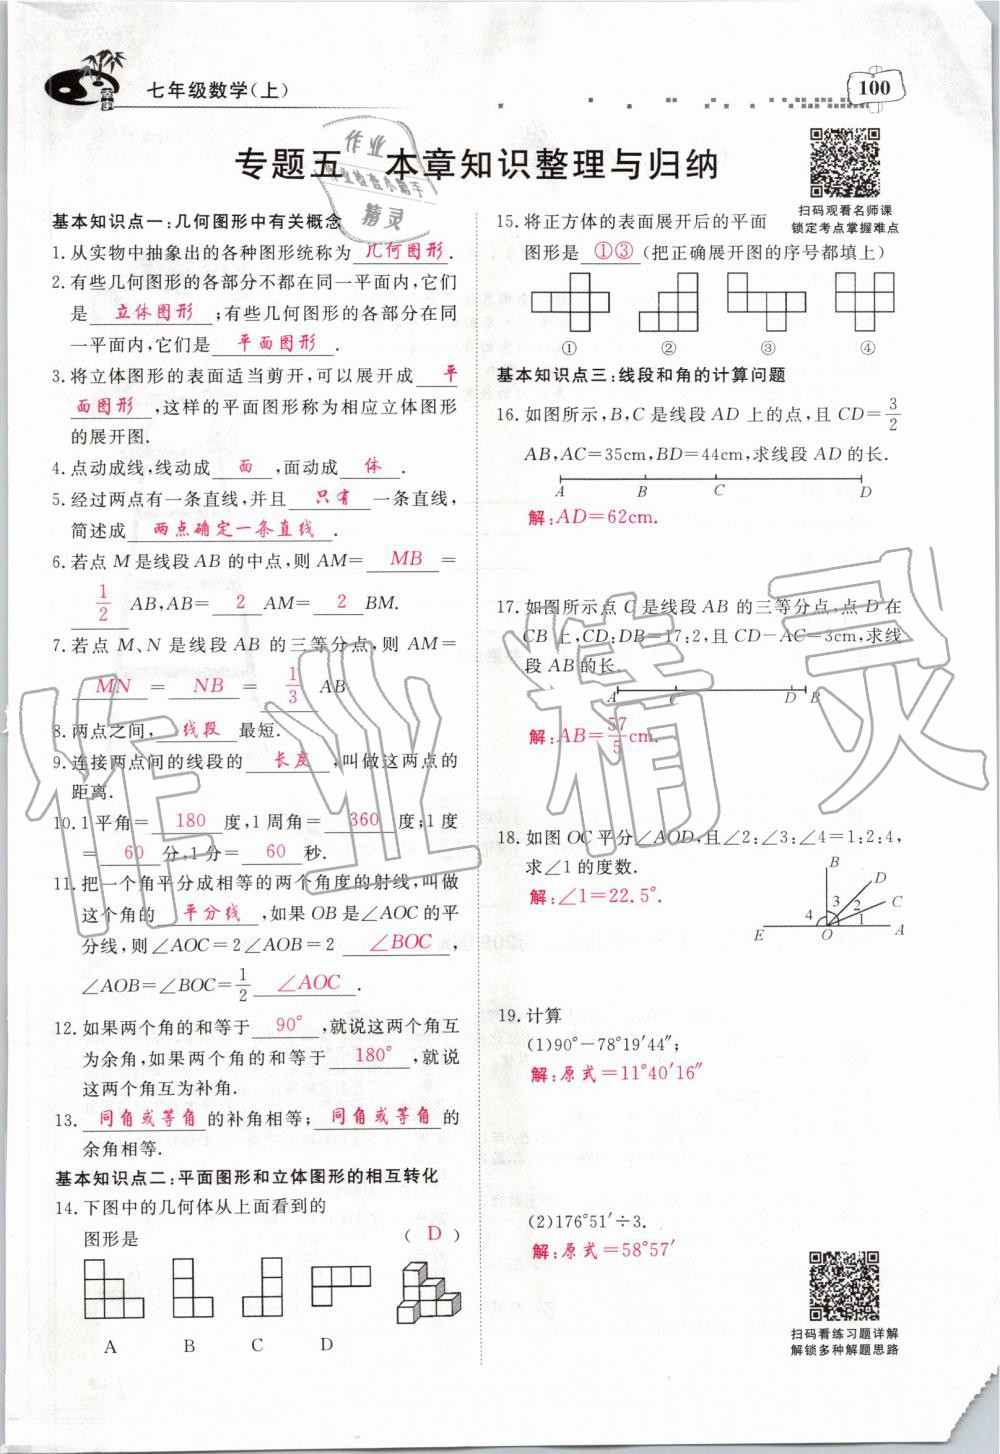 七年级数学(上)
100
专题五 本章知识整理与归纳
扫码观看名师课
锁定考点掌握难点
基本知识点一:几何图形中有关概念
1.从实物中抽象出的各种图形统称为 几何图形 .
2.有些几何图形的各部分不都在同一平面内,它们
是 立体图形 ;有些几何图形的各部分在同
一平面内,它们是 平面图形 .
3.将立体图形的表面适当剪开,可以展开成 平
面图形 ,这样的平面图形称为相应立体图形
的展开图.
4.点动成线,线动成 面 ,面动成 体 .
5.经过两点有一条直线,并且 只有 一条直线,
简述成 两点确定一条直线 .
6.若点 M 是线段 AB 的中点,则 AM= MB =
1/2 AB,AB= 2 AM= 2 BM.
7.若点 M、N 是线段 AB 的三等分点,则 AM=
MN = NB = 1/3 AB
8.两点之间, 线段 最短.
9.连接两点间的线段的 长度 ,叫做这两点的
距离.
10.1平角= 180 度,1周角= 360 度;1度
= 60 分,1分= 60 秒.
11.把一个角平分成相等的两个角度的射线,叫做
这个角的 平分线 ,如果 OB 是∠AOC 的平
分线,则∠AOC=2∠AOB=2 ∠BOC ,
∠AOB=∠BOC=1/2 ∠AOC .
12.如果两个角的和等于 90° ,就说这两个角互
为余角,如果两个角的和等于 180° ,就说
这两个角互为补角.
13. 同角或等角 的补角相等; 同角或等角 的
余角相等.
基本知识点二:平面图形和立体图形的相互转化
14.下图中的几何体从上面看到的
图形是 ( D )
A B C D
15.将正方体的表面展开后的平面
图形是 ①③ (把正确展开图的序号都填上)
① ② ③ ④
基本知识点三:线段和角的计算问题
16.如图所示,B,C 是线段 AD 上的点,且 CD=3/2
AB,AC=35cm,BD=44cm,求线段 AD 的长.
A B C D
解:AD=62cm.
17.如图所示点 C 是线段 AB 的三等分点,点 D 在
CB 上,CD:DB=17:2,且 CD-AC=3cm,求线
段 AB 的长.
A C D B
解:AB=57/5cm.
18.如图 OC 平分∠AOD,且∠2:∠3:∠4=1:2:4,
求∠1的度数.
解:∠1=22.5°.
B
D
C
4 3 2 1
E O A
19.计算
(1)90°-78°19′44″;
解:原式=11°40′16″
(2)176°51′÷3.
解:原式=58°57′
扫码看练习题详解
解锁多种解题思路
作业
作业检查小助手
精灵
作业精灵